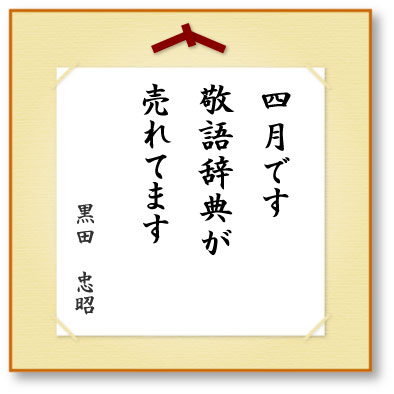 四月です
敬語辞典が
売れてます
黒田 忠昭